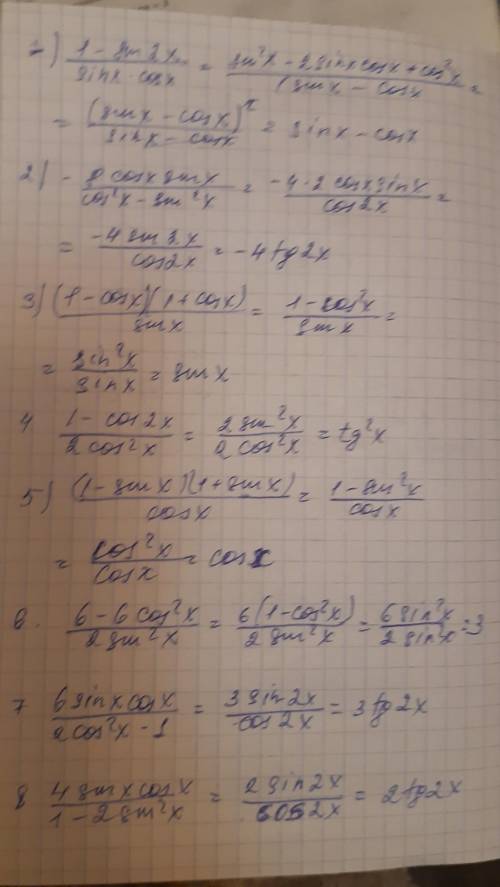 1) (1 - sin2x)/(sinx · cosx) = (sin²x - 2sinx cosx + cos²x)/(sinx - cosx) =
= (sinx - cosx)²/(sinx - cosx) = sinx - cosx
2) - (8 cosx sinx)/(cos²x - sin²x) = (-4·2 cosx sinx)/(cos2x) =
= (-4 sin2x)/(cos2x) = -4 tg2x
3) ((1 - cosx)(1 + cosx))/(sinx) = (1 - cos²x)/(sinx) =
= (sin²x)/(sinx) = sinx
4 (1 - cos2x)/(2cos²x) = (2sin²x)/(2cos²x) = tg²x
5) ((1 - sinx)(1 + sinx))/(cosx) = (1 - sin²x)/(cosx)
= (cos²x)/(cosx) = cosx
6. (6 - 6cos²x)/(2sin²x) = (6(1 - cos²x))/(2sin²x) = (6sin²x)/(2sin²x) = 3
7 (6sinx cosx)/(2cos²x - 1) = (3sin2x)/(cos2x) = 3tg2x
8 (4sinx cosx)/(1 - 2sin²x) = (2sin2x)/(cos2x) = 2tg2x